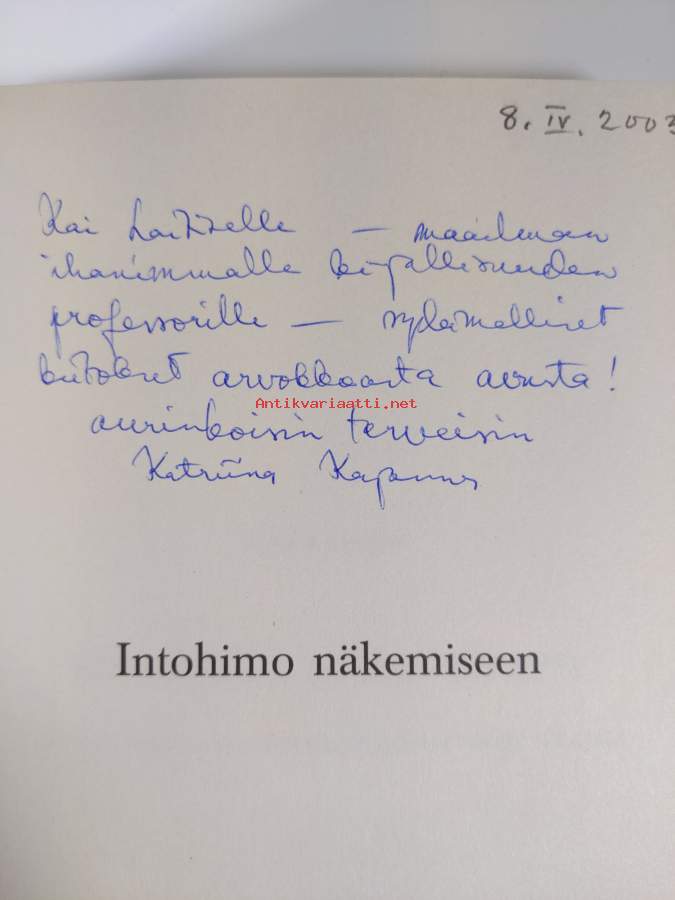 8. IV. 2003
Kai Laitiselle — maailman
ihanimmalle kirjallisuuden
professorille — sydämelliset
kiitokset arvokkaasta avusta!
Antikvariaatti.net
aurinkoisin terveisin
Katriina Kajannes
Intohimo näkemiseen